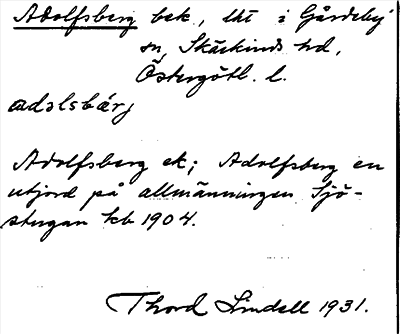 Adolfsberg bek., lht i Gårdeby
sn, Skärkinds hd,
Östergötl. l.
adɔlsbärj
Adolfsberg ek; Adolfsberg en
utjord på allmänningen Sjö-
stugan kb 1904.
Thord Lindell 1931.